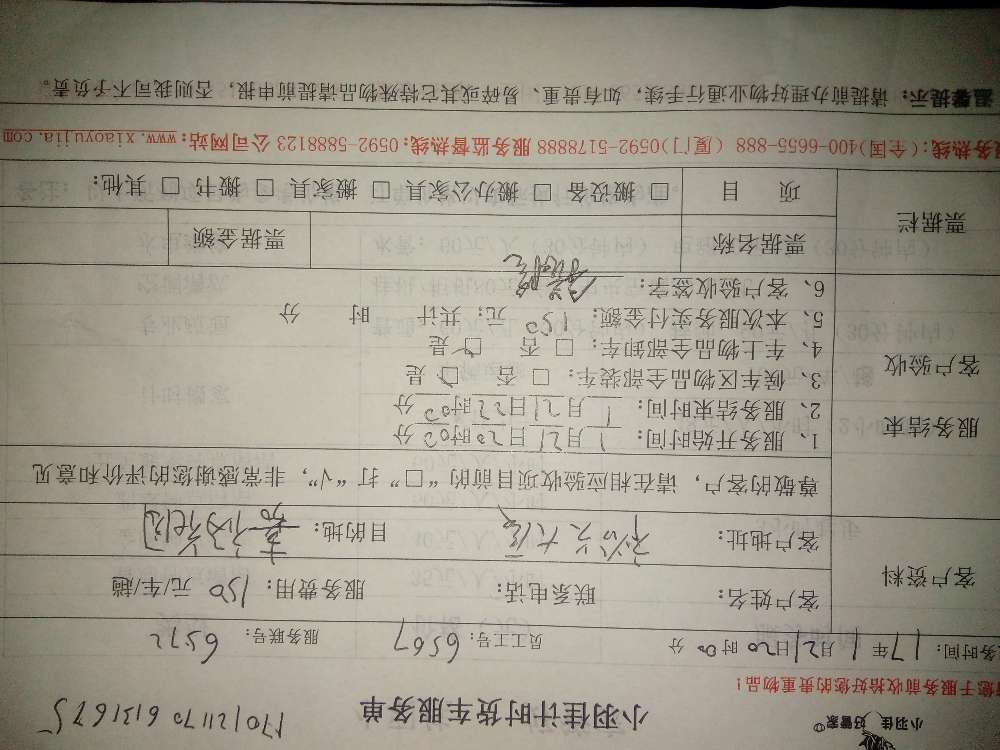 小羽佳 好管家
小羽佳计时货车服务单
您于服务前收拾好您的贵重物品!
务时间: 17年 1月21日20时00分 员工工号: 6567 服务联号: 6572
客户资料
客户姓名: 联系电话: 服务费用: 150 元/车/趟
客户地址: 目的地:
尊敬的客户，请在相应验收项目前的“□”打“√”，非常感谢您的评价和意见
服务结束
客户验收
1、服务开始时间: 1月21日20时00分
2、服务结束时间: 1月21日22时00分
3、候车区物品全部装车: □ 否 □ 是
4、车上物品全部卸车: □ 否 □ 是
5、本次服务实付金额: 150 元; 共计 时 分
6、客户验收签字:
票据栏
票据名称 票据金额
项 目 □ 搬设备 □ 搬办公家具 □ 搬家具 □ 搬书 □ 其他:
务热线:(全国)400-6655-888 (厦门)0592-5178888 服务监督热线:0592-5888123 公司网站:www.xiaoyujia.com
温馨提示: 请提前办理好物业通行手续，如有贵重、易碎或其它特殊物品请提前申报，否则我司不予负责。